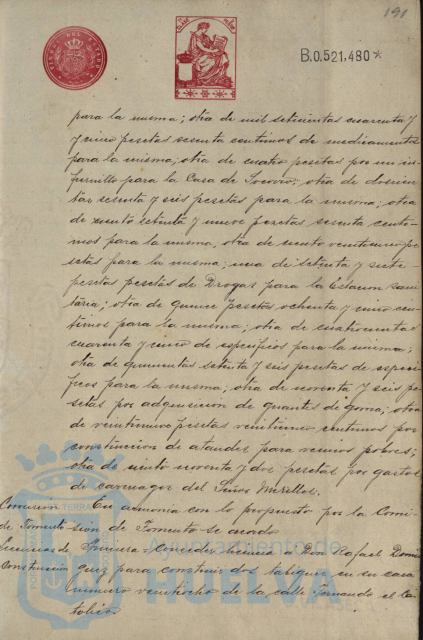 191
B.0.521,480*
para la misma; otra de mil setecientas cuarenta y
y cinco pesetas sesenta centimos de medicamentos
para la misma; otra de cuatro pesetas por un in-
fiernillo para la Casa de Socorro; otra de doscien-
tas sesenta y seis pesetas para la misma; otra
de ciento setenta y nueve pesetas sesenta centi-
mos para la misma, otra de ciento veinticinco pe-
setas para la misma; una de setenta y siete
pesetas pesetas de Drogas para la Estacion sani-
taria; otra de quince pesetas ochenta y cinco cen-
timos para la misma; otra de cuatrocientas
cuarenta y cinco de especificos para la misma;
otra de quinientas setenta y seis pesetas de especi-
ficos para la misma; otra de noventa y seis pe-
setas por adquisicion de guantes de goma; otra
de veintinueve pesetas veinticinco centimos por
construccion de ataudes para vecinos pobres;
otra de ciento noventa y dos pesetas por gastos
de carruages del Señor
Comision En armonia con lo propuesto por la Comi-
de Fomento sion de Fomento se acordo
Licencias de Primera conceder licencia a Don Rafael
Construcción para construir dos tabiques en su casa
numero veintiocho de la calle Fernando el Ca-
tolico.
Ayuntamiento de
HUELVA